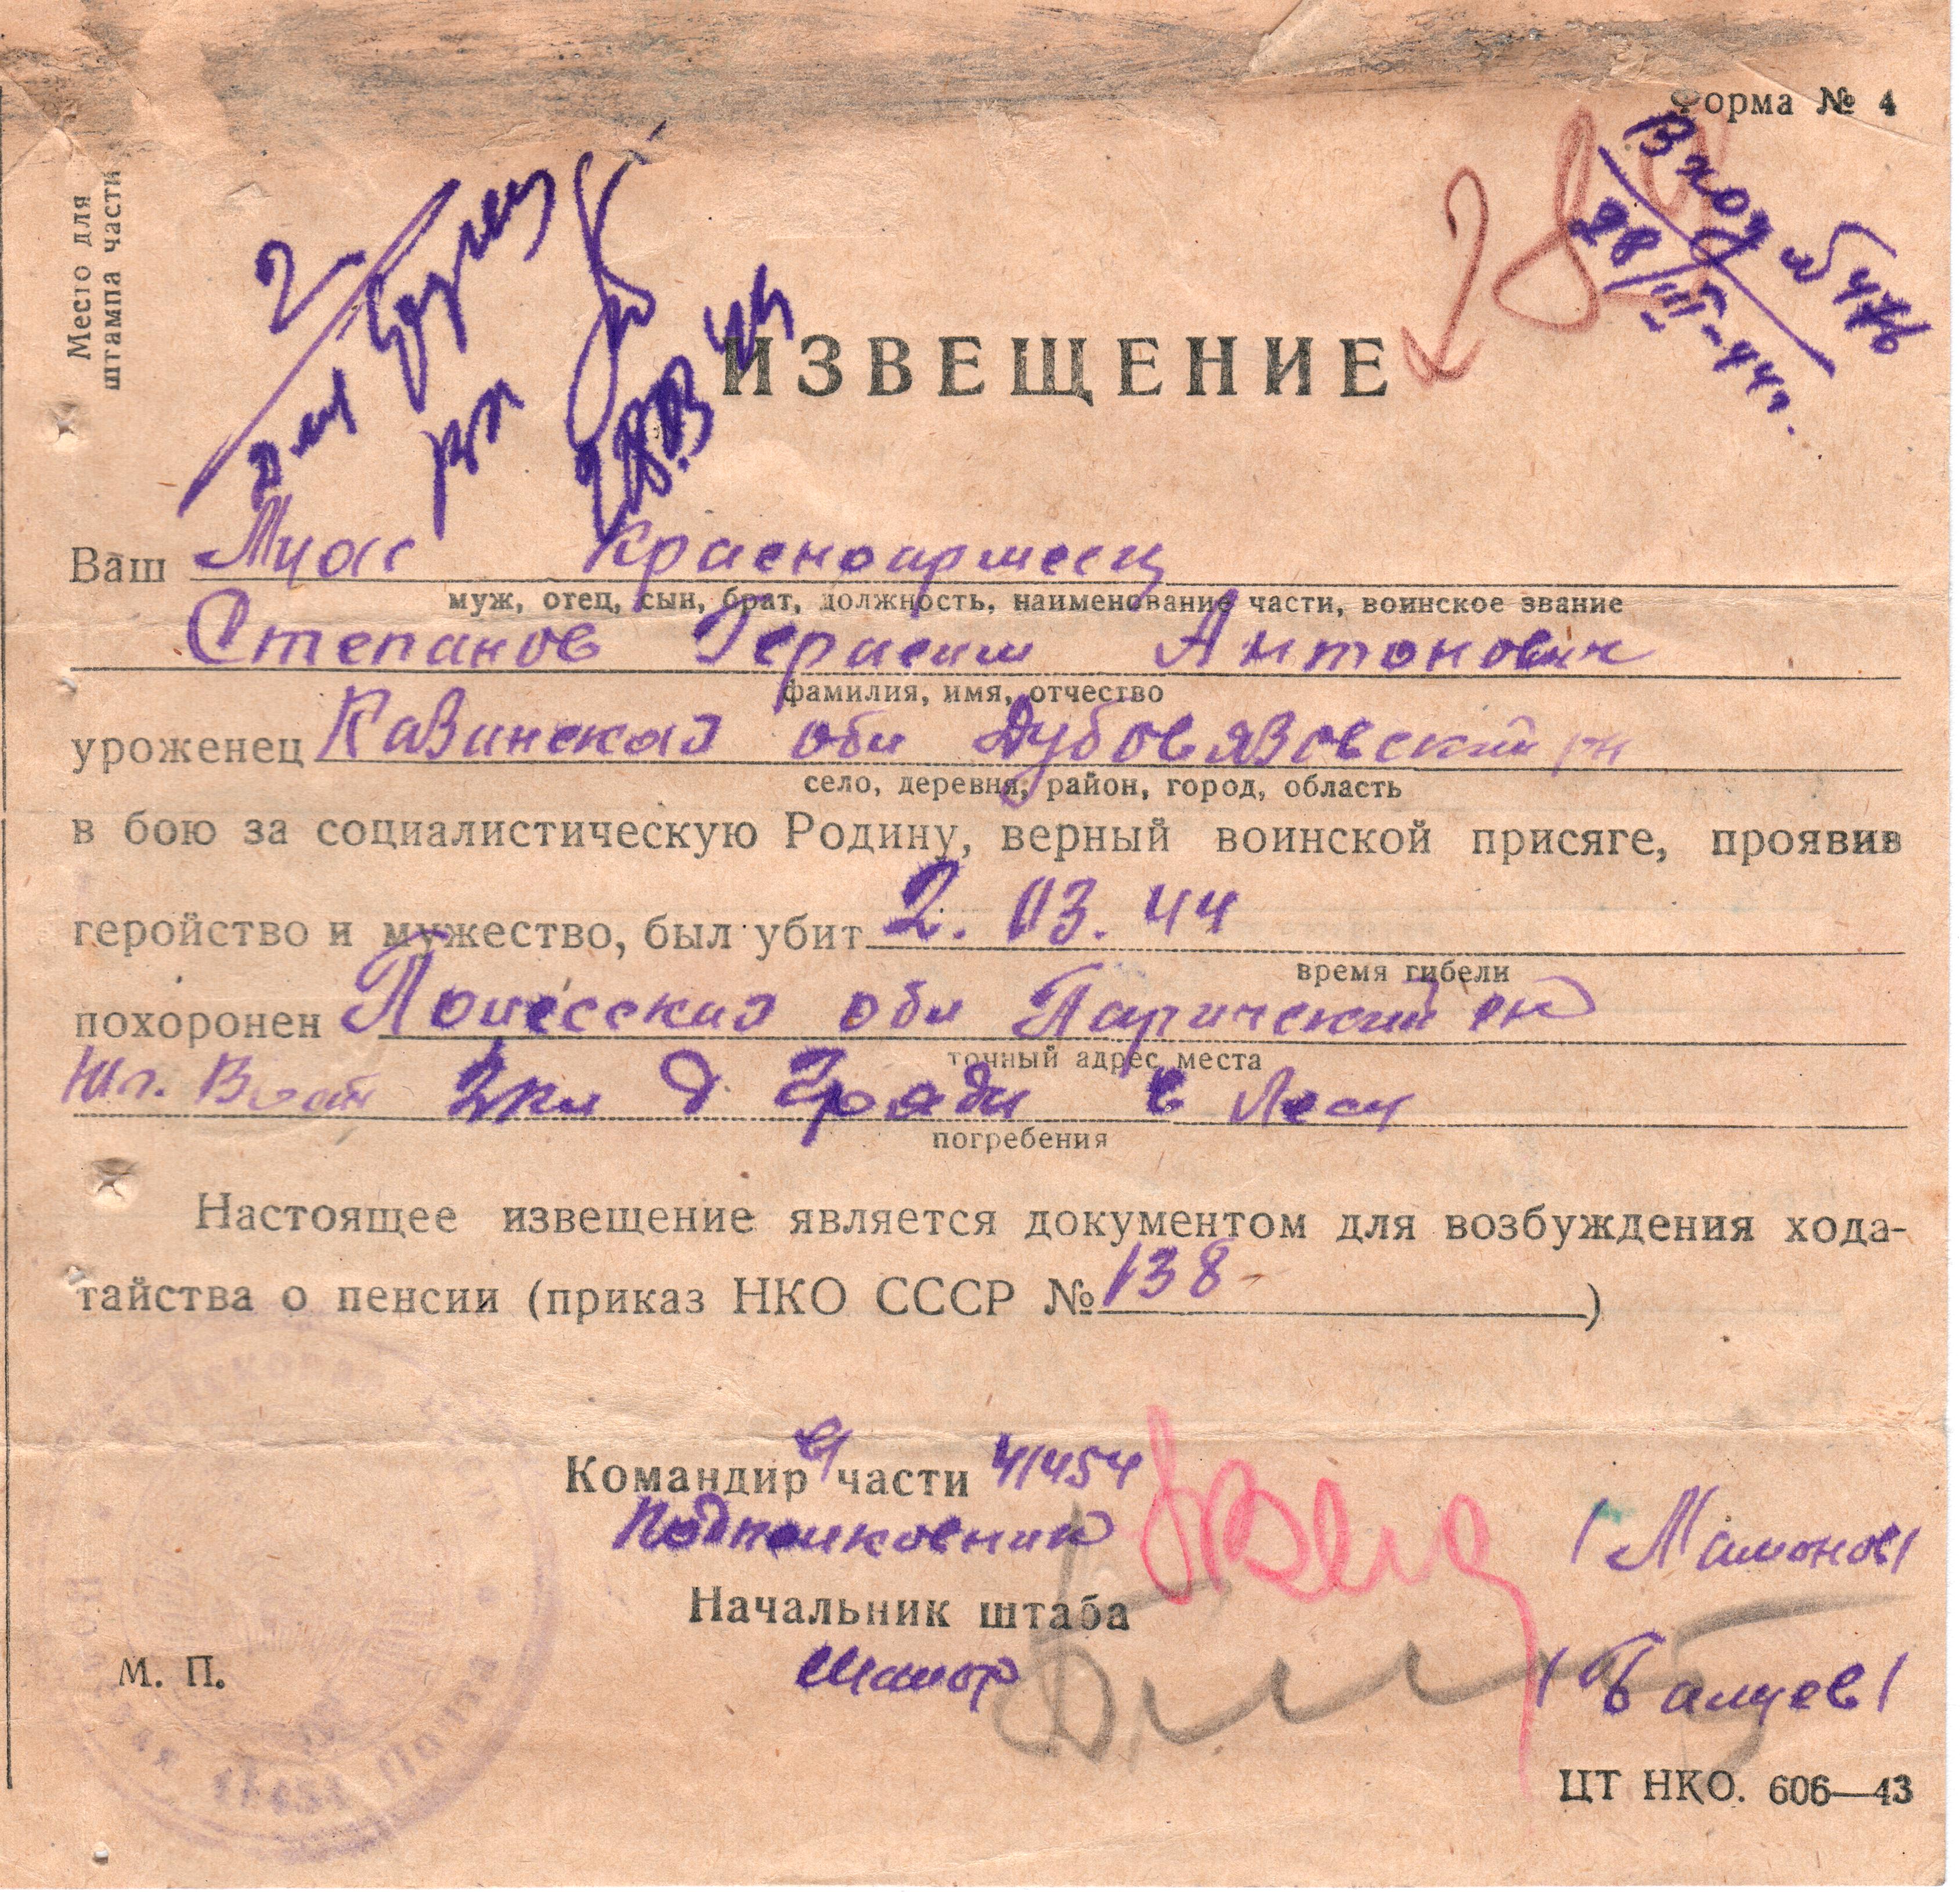 Форма № 4
Место для
штампа части
Вход № 476
28/III-44г.
28
2
28.03 44
ИЗВЕЩЕНИЕ
Ваш Муж красноармеец
муж, отец, сын, брат, должность, наименование части, воинское звание
Степанов Герасим Антонович
фамилия, имя, отчество
уроженец обл Дубовязовский рн
село, деревня, район, город, область
в бою за социалистическую Родину, верный воинской присяге, проявив
геройство и мужество, был убит 2. 03. 44
время гибели
похоронен Полесская обл Паричский рн
точный адрес места
Юг. Вост 2км д Гряды в лесу
погребения
Настоящее извещение является документом для возбуждения хода-
тайства о пенсии (приказ НКО СССР № 138 )
Командир части 41454
Подполковник /Мамонов/
Начальник штаба
Майор
М. П.
ЦТ НКО. 606—43